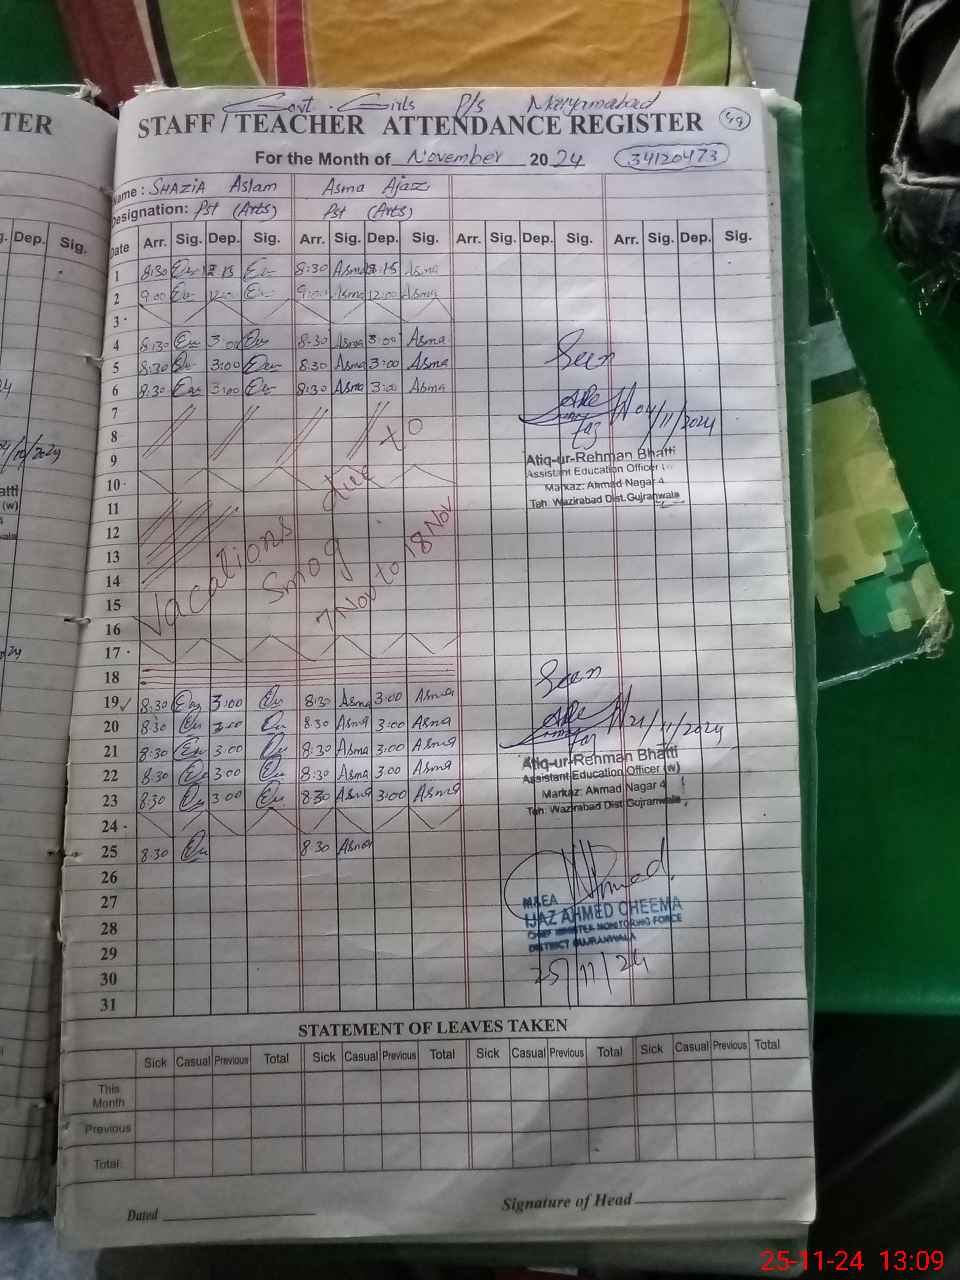 TER
Govt. Girls P/s Maryamabad
STAFF / TEACHER ATTENDANCE REGISTER 49
For the Month of November 2024 34120473
Name : SHAZIA Aslam Asma Ajaz
Designation: Pst (Arts) Pst (Arts)
Dep. Sig.
Date Arr. Sig. Dep. Sig. Arr. Sig. Dep. Sig. Arr. Sig. Dep. Sig. Arr. Sig. Dep. Sig.
1 8:30 8:30 Asma Asma
2 9:00 9:00 Asma 12:00 Asma
3
4 8:30 3:00 8:30 Asma 3:00 Asma
5 8:30 3:00 8:30 Asma 3:00 Asma
6 8:30 3:00 8:30 Asma 3:00 Asma
Seen
04/11/2024
Atiq-ur-Rehman Bhatti
Assistant Education Officer
Markaz: Ahmad Nagar
Teh. Wazirabad Dist. Gujranwala
7
8
9
10
11
12
13
14
15
16
17
18
Vacations due to
Smog
7 Nov to 18 Nov
19 8:30 3:00 8:30 Asma 3:00 Asma
20 8:30 3:00 8:30 Asma 3:00 Asma
21 8:30 3:00 8:30 Asma 3:00 Asma
22 8:30 3:00 8:30 Asma 3:00 Asma
23 8:30 3:00 8:30 Asma 3:00 Asma
24
25 8:30 8:30 Asma
26
27
28
29
30
31
Seen
21/11/2024
Atiq-ur-Rehman Bhatti
Assistant Education Officer (w)
Markaz: Ahmad Nagar
Teh. Wazirabad Dist. Gujranwala
MEA
IJAZ AHMED CHEEMA
CHIEF MINISTER MONITORING FORCE
DISTRICT GUJRANWALA
25/11/24
STATEMENT OF LEAVES TAKEN
Sick Casual Previous Total Sick Casual Previous Total Sick Casual Previous Total Sick Casual Previous Total
This Month
Previous
Total:
Dated Signature of Head
25-11-24 13:09